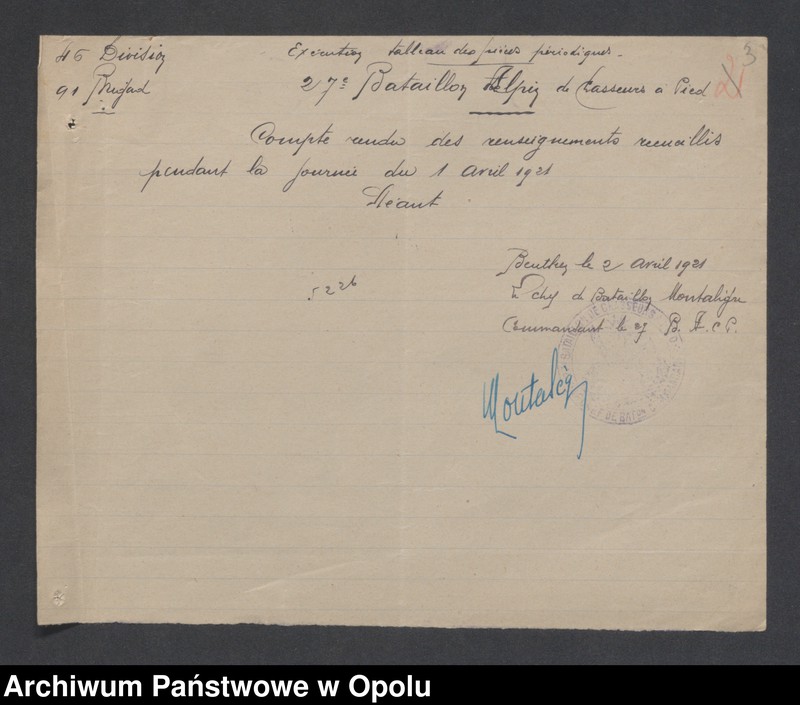 46 Division
Exécution tableau des pièces périodiques -
3
91 Brigad
27e Bataillon Alpin de Chasseurs à Pied
21
Compte rendu des renseignements recueillis
pendant la journée du 1 Avril 1921
Néant
Beuthen le 2 Avril 1921
Le chef de Bataillon Montalègre
522b
Commandant le 27 B. A. C. P.
Montalèg
Archiwum Państwowe w Opolu